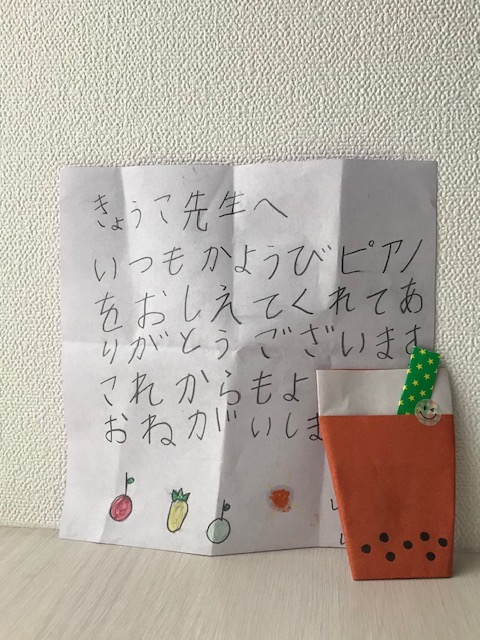 きょうこ先生へ
いつもかようびピアノ
をおしえてくれてあ
りがとうございます
これからもよ
おねがいしま